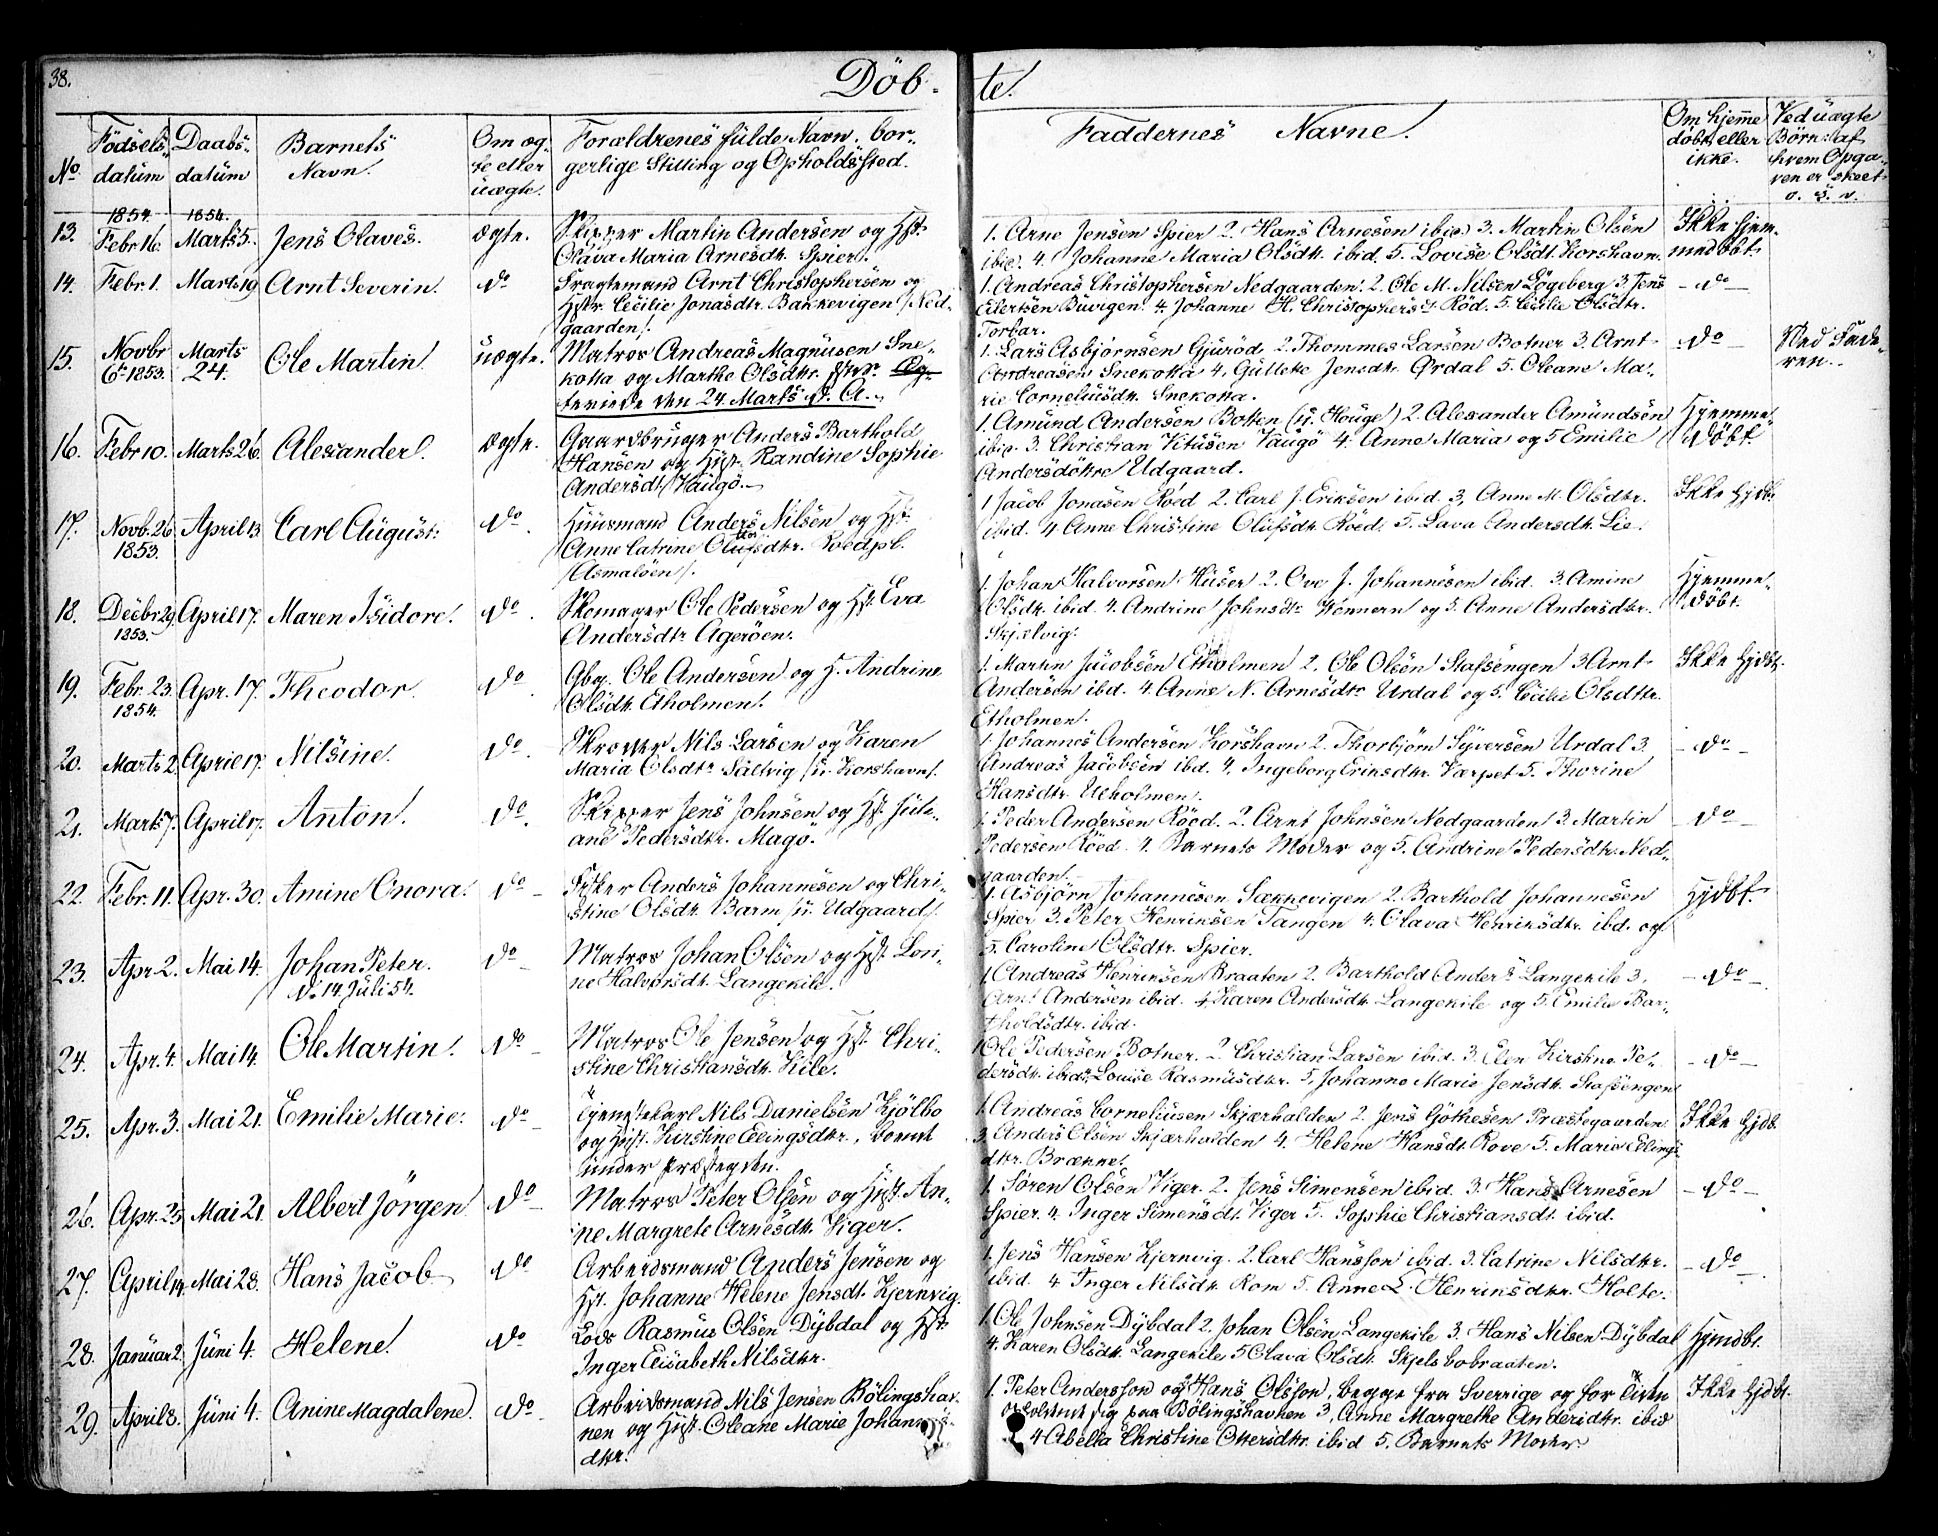 38.
Döb-
te.
No.
Födsels-
datum
Daabs-
datum
Barnets
Navn.
Om æg-
te eller
uægte.
Forældrenes fulde Navn, bor-
gerlige Stilling og Opholdssted.
Faddernes Navne.
Om hjemme
döbt eller
ikke.
Ved uægte
Börn: af
hvem Opga-
ven er skeet
o. s. v.
1854.
1854.
13. Febr 16. Marts 5. Jens Olaves. ægte.
Skipper Martin Andersen og Hst.
Olava Maria Arnesdtr. Spier.
1. Arne Jensen Spier 2. Hans Arnesen ibid. 3. Martin Olsen
ibid. 4. Johanne Maria Olsdtr. ibid. 5. Lovise Olsdtr. Korshavn.
Ikke hjem-
medöbt
14. Febr. 1. Marts 19. Arnt Severin. do
Fragtemand Arnt Christophersen og
Hstr. Cecilie Jonasdtr. Bakkevigen /: Ned-
gaarden :/.
1. Andreas Christophersen Nedgaarden. 2. Ole M. Nilsen Lögeberg 3. Jens
Eilertsen Buvigen. 4. Johanne H. Christophersdt. Röd. 5. Cecilie Olsdtr.
Torbar.
- do -
15. Novbr 6te 1853. Marts 24. Ole Martin. uægte.
Matros Andreas Magnusen Sne-
kotta og Marthe Olsdtr.
den 24. Marts d. A.
1. Lars Asbjørnsen Gjuröd. 2. Thommes Larsen Botner 3. Arnt
Andreasen Snekotta 4. Gulleke Jensdtr. Ørdal 5. Oleane Ma-
rie Corneliusdtr. Snekotta.
do -
Ved Fade-
ren.
16. Febr 10. Marts 26. Alexander. ægte.
Gaardbruger Anders Barthold
Hansen og Hst. Randine Sophie
Andersdt. Vaugö.
1. Amund Andersen Botten (u. Houge) 2. Alexander Amundsen
ibid. 3. Christian Vitusen Vaugö 4. Anne Maria og 5 Emilie
Andersdöttre Udgaard.
Hjemme-
döbt
17. Novb. 26 1853. April 13. Carl August. do
Huusmand Anders Nilsen og Hst.
Anne Catrine Olufsdtr. Roedpl.
/: Asmalöen :/.
1 Jacob Jonasen Röed 2. Carl J. Eriksen ibid. 3. Anne M. Olsdtr.
ibid. 4 Anne Christine Olufsdtr. Röed. 5. Lava Andersdtr. Lie.
Ikke Hjdbt.
18. Decbr 29. 1853. April 17. Maren Isidore. do.
Skomager Ole Pedersen og Hst. Eva
Andersdtr Ageröen.
1. Johan Halvorsen Huser 2. Ove J. Johannesen ibid. 3. Amine
Olsdtr. ibid. 4. Andrine Johnsdtr. Hönnern og 5. Anne Andersdtr.
Skjelvig.
Hjemme-
döbt.
19. Febr. 23. 1854. Apr. 17. Theodor. do.
Gbg. Ole Andersen og H. Andrine
Olsdtr. Etholmen.
1. Martin Jacobsen Etholmen 2. Ole Olsen Stafsengen 3 Arnt
Andersen ibd. 4. Anne N. Arnesdtr Urdal og 5. Cecilie Olsdtr.
Etholmen.
Ikke Hjdbt.
20. Marts 2. April 17. Nilsine. do.
Nils Larsen og Karen
Maria Olsdtr Saltvig /: u. Korshavn :/.
1. Johannes Andersen Korshavn 2. Thorbjörn Syversen Urdal 3.
Andreas Jacobsen ibd. 4. Ingeborg Eriksdtr. Værpet 5. Thorine
Hansdtr. Utholmen.
- do -
21. Marts 7. April 17. Anton. do.
Skipper Jens Johnsen og Hst. Jule-
ane Pedersdtr. Magö.
1. Peder Andersen Röed. 2. Arnt Johnsen Nedgaarden 3. Martin
Pedersen Röed. 4. Barnets Moder og 5. Andrine Pedersdtr. Ned-
gaarden.
- do -
22. Febr. 11. Apr. 30. Amine Onora. do -
Fisker Anders Johannesen og Chri-
stine Olsdtr. Barm /: u. Udgaard :/.
1. Asbjörn Johannesen Sækkevigen 2. Barthold Johannesen
Spier 3. Peter Henriksen Tangen 4. Olava Henriksdtr. ibd. og
5. Caroline Olsdtr. Spier.
Hjdbt.
23. Apr. 2. Mai 14. Johan Peter.
d. 14 Juli 54.
do -
Matros Johan Olsen og Hst. Lovi-
ne Halvorsdt. Langekil.
1. Andreas Henriksen Braaten 2. Barthold Anders. Langekile 3.
Arnt Andersen ibid. 4. Karen Andersdtr. Langekile og 5. Emilie Bar-
tholdsdtr. ibid.
- do -
24. Apr. 4. Mai 14. Ole Martin. do -
Matros Ole Jensen og Hst. Chri-
stine Christiansdtr. Kile.
1 Ole Pedersen Botner. 2. Christian Larsen ibid. 3. Elen Kirstine Pe-
dersdtr. ibid 4. Louise Rasmusdtr. 5. Johanne Marie Jensdt. Stafsengen
- do -
25. Apr. 3. Mai 21. Emilie Marie. do -
Tjenestekarl Nils Danielsen Kjölbo
og Hst. Kirstine Ellingsdtr.
under Præstegrden.
1. Andreas Corneliusen Skjærhalden 2. Jens Göthesen Præstegaarden
3. Anders Olsen Skjærhalden 4. Helene Hansdt. Rove 5. Marie Ellings-
dtr. Brække.
Ikke Hjdb.
26. Apr. 25. Mai 21. Albert Jörgen. do -
Matros Peter Olsen og Hst. An-
ine Margrete Arnesdtr. Viger.
1. Sören Olsen Viger. 2. Jens Simensen ibid. 3. Hans Arnesen
Spier. 4. Inger Simensdt. Viger 5. Sophie Christiansdt. ibid.
- do -
27. April 14. Mai 28. Hans Jacob do
Arbeidsmand Anders Jensen og
Hst. Johanne Helene Jensdt. Kjernvig.
1. Jens Hansen Kjernvig. 2. Carl Hansson ibid. 3. Catrine Nilsdtr.
ibid. 4. Inger Nilsdtr. Rom 5. Anne L. Henriksdtr. Holte.
- do -
28. Januar 2. Juni 4. Helene. do
Lods Rasmus Olsen Dybdal og Hst.
Inger Elisabeth Nilsdtr.
1. Ole Johnsen Dybdal 2. Johan Olsen Langekile 3. Hans Nilsen Dybdal
4. Karen Olsdtr. Langekile 5 Olava Olsdt. Skjelsbobraaten.
Hjmdbt.
29. April 8. Juni 4. Anine Magdalene. do -
Arbeidsmand Nils Jensen Bölingshav-
nen og Hst. Oleane Marie Johannes-
dtr.
1. Peter Andersson og 2 Hans Olsson, begge fra Sverrige og for Tiden
opholdende sig paa Bölingshavnen 3. Anne Margrethe Andersdtr. ibid
4 Abella Christine Ottersdtr. ibid 5. Barnets Moder.
Ikke Hjdbt.